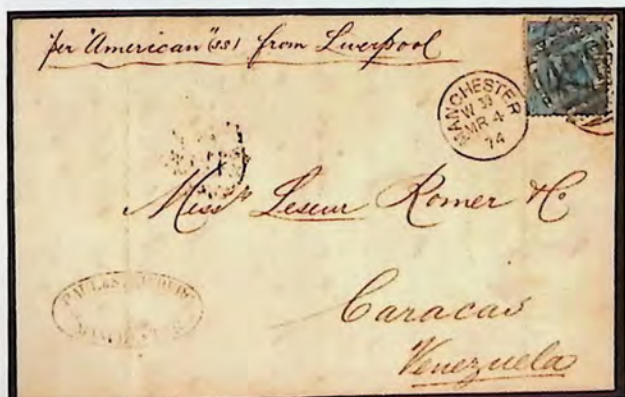 per "American" (ss) from Liverpool
MANCHESTER
W 39
MR 4
74
Mess.rs Leseur Romer & Co
Caracas
Venezuela